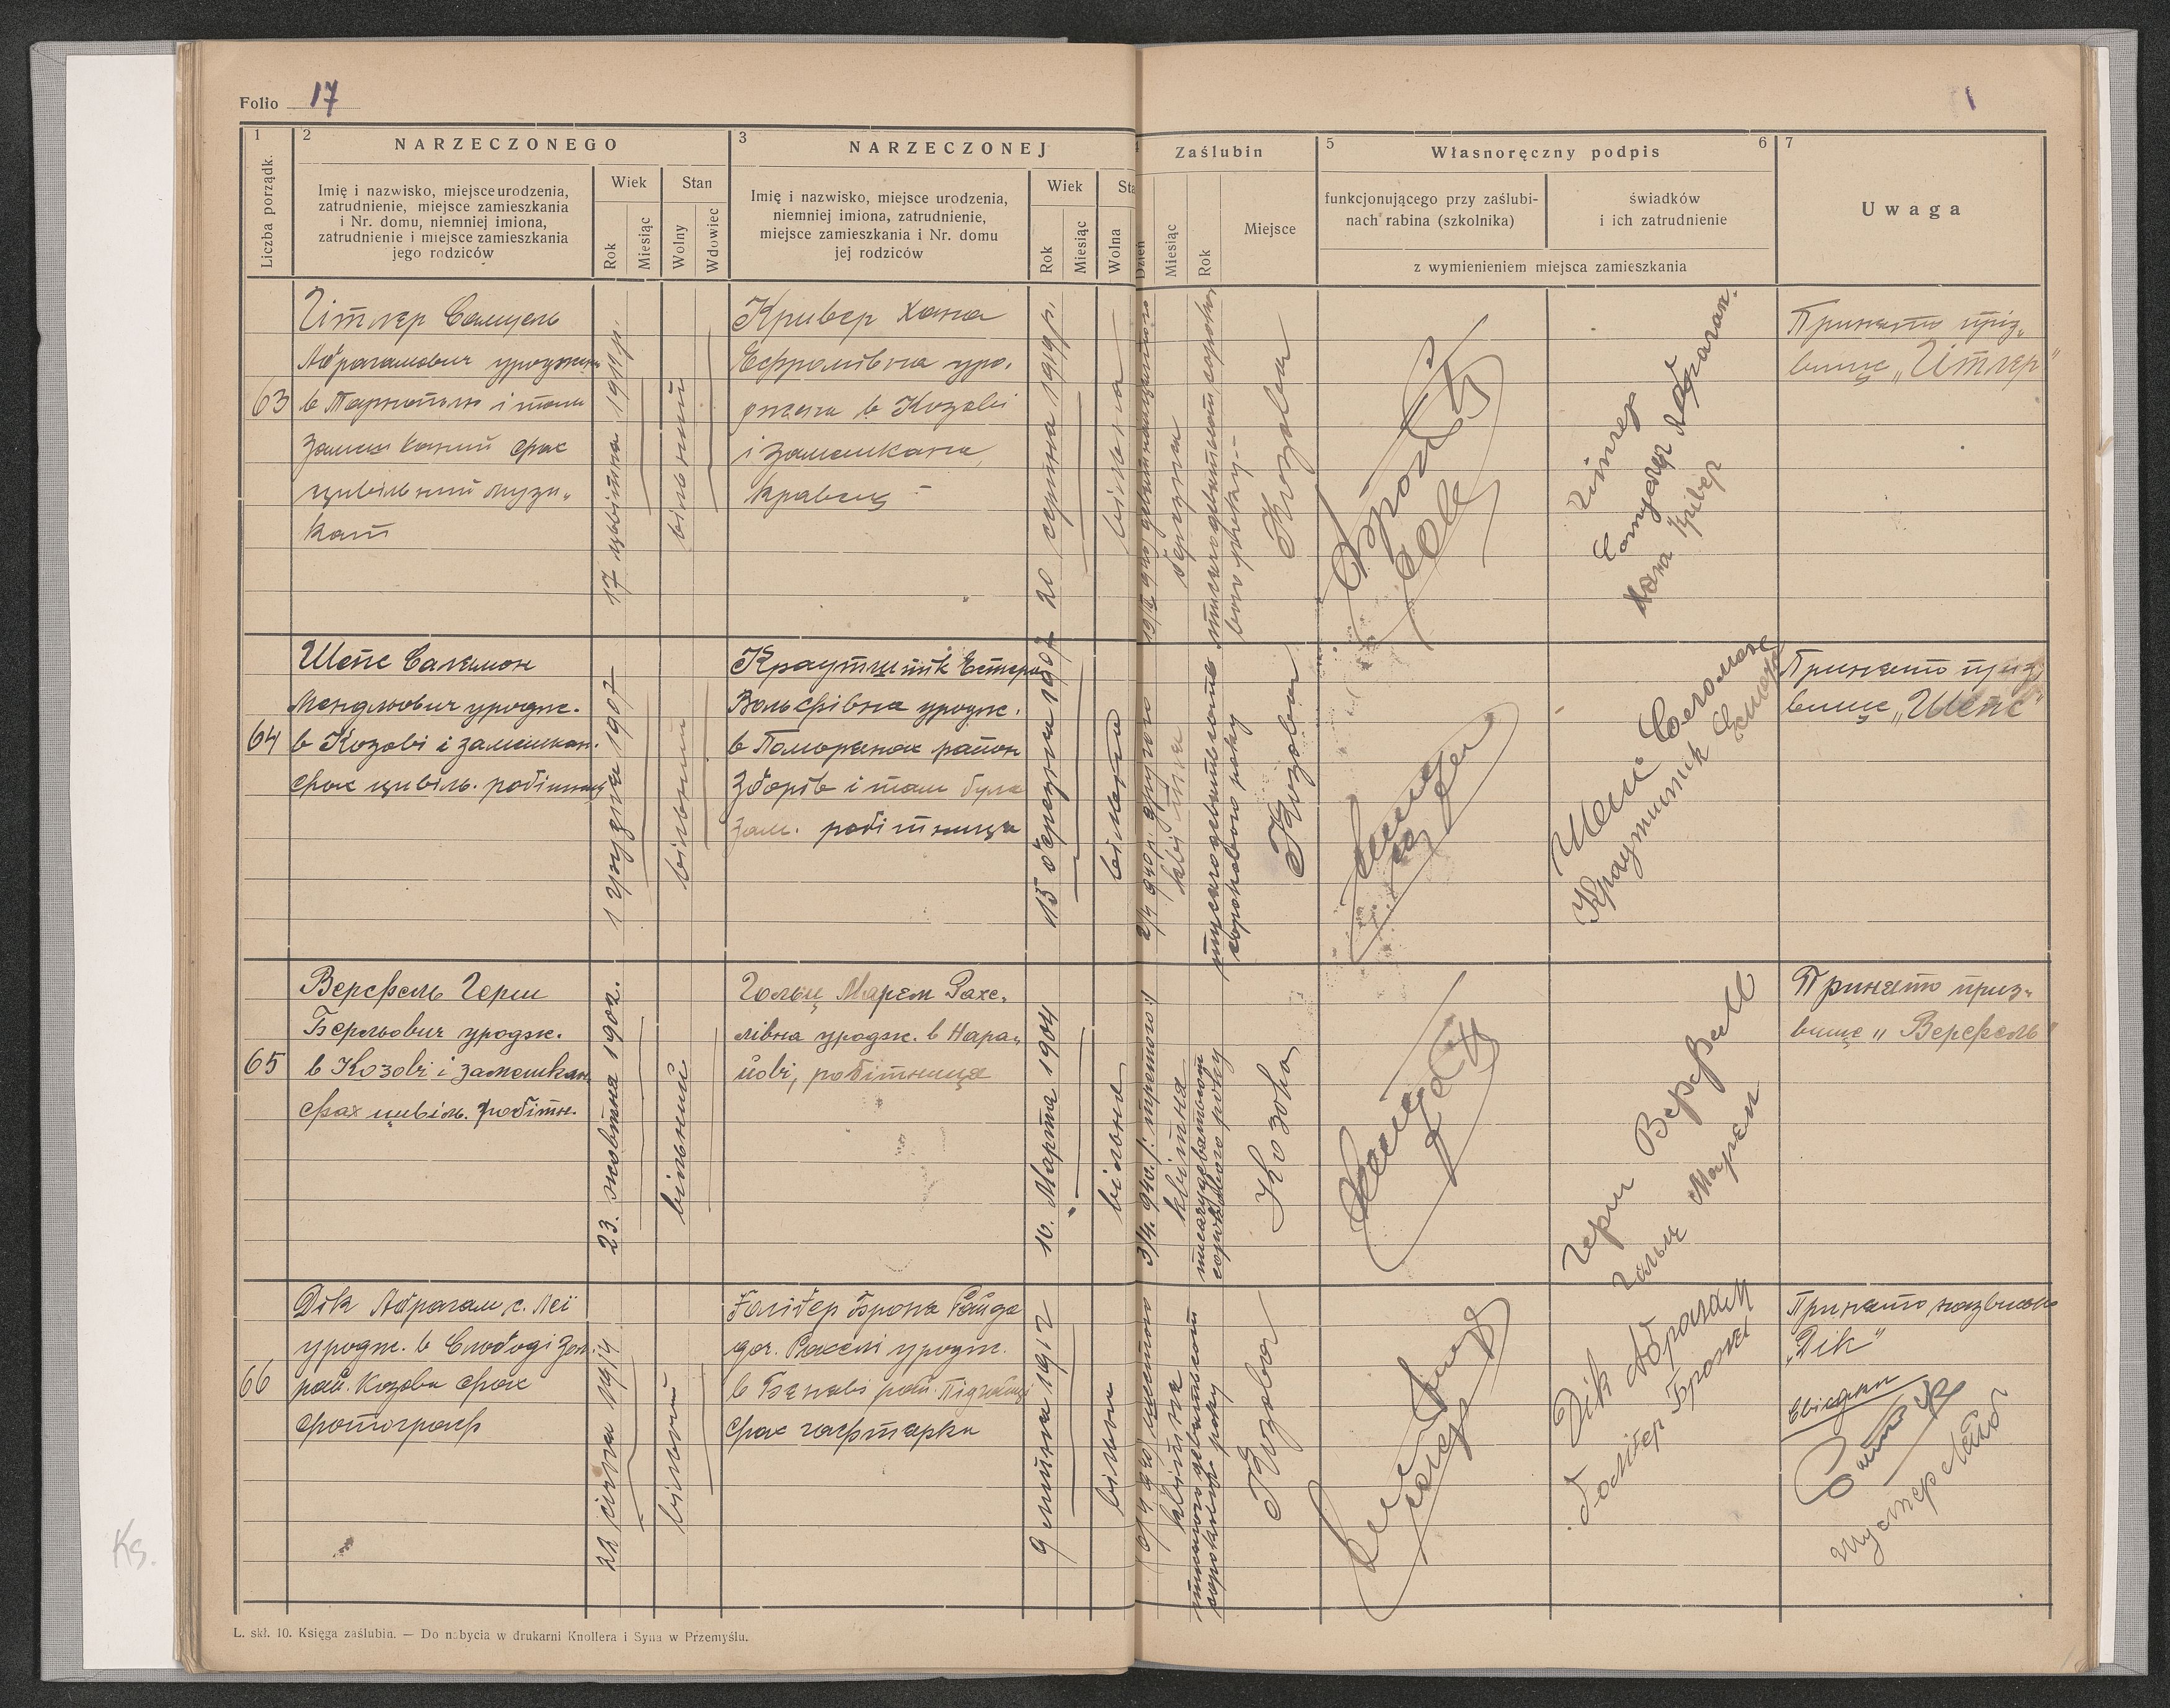 Folio 17
1
1
Liczba porządk.
2
NARZECZONEGO
Imię i nazwisko, miejsce urodzenia,
zatrudnienie, miejsce zamieszkania
i Nr. domu, niemniej imiona,
zatrudnienie i miejsce zamieszkania
jego rodziców
Wiek
Rok
Miesiąc
Stan
Wolny
Wdowiec
3
NARZECZONEJ
Imię i nazwisko, miejsce urodzenia,
niemniej imiona, zatrudnienie,
miejsce zamieszkania i Nr. domu
jej rodziców
Wiek
Rok
Miesiąc
Sta
Wolna
Zaślubin
Dzień
Miesiąc
Rok
Miejsce
5
Własnoręczny podpis
6
funkcjonującego przy zaślubi-
nach rabina (szkolnika)
świadków
i ich zatrudnienie
z wymienieniem miejsca zamieszkania
7
Uwaga
63
Гітлер Самуель
Абрагамович уроджен
в Тарнополи і там
замешканий фах
цивільний музи„
кант
17 цвітня 1911 р.
вільний
Кривер Хана
Ефроімівна уро.
джена в Козові
і замешкана,
кравец -
20 серпня 1919 р.
вільна
березня
тисячодевятьсот сороко
вого року --
Козова
Гітлер
Самуель Абрагам.
Хана Крівер
Принято пріз„
вище „Гітлер"
64
Шепс Салемон
Мендльович уродж.
в Козові і замешкан.
фах цивіль. робітник
1 грудня 1907
вільний
Краутшнік Естера
Вольфівна уродж.
в Поморянах район
Зборів і там була
зам. робітниця
15 березня 1907
вільна
2/4 940 р. другого
квітня
тисячодевятьсоть
сорокового року
Козова
Шепс Соломон
Краутшнік Естера
Принято приз
вище „Шепс"
65
Верфель Герш
Берльович уродж.
в Козові і замешкан.
фах цивіль. робітн.
23. жовтня 1902.
вільний
Гольц Марем Рахе„
лівна уродж. в Нара„
йові, робітниця
10. Марта 1904
вільна
3/4. 940. /: третого :/
квітня
тисячудевятьсот
сорокового року
Козова
Герш Верфель
Гольц Марем
Принято приз„
вище „Верфель"
66
Дік Абрагам с. Леї
уродж. в Слободі Зол.
рай. Козова фах
фотограф
22 січня 1914
вільний
Голібер Брона Файда
доч. Рахелі уродж.
в Бекаві рай. Підгайці
фах гафтарки
9 липня 1912
вільна
квітня
тисячодевятьсот
сорокового року
Козова
Дік Абрагам
Голібер Брона
Принято назвисько
„Дік"
свідки
Шустер Лейб
L. skł. 10. Księga zaślubin. — Do nabycia w drukarni Knollera i Syna w Przemyślu.
Ks.